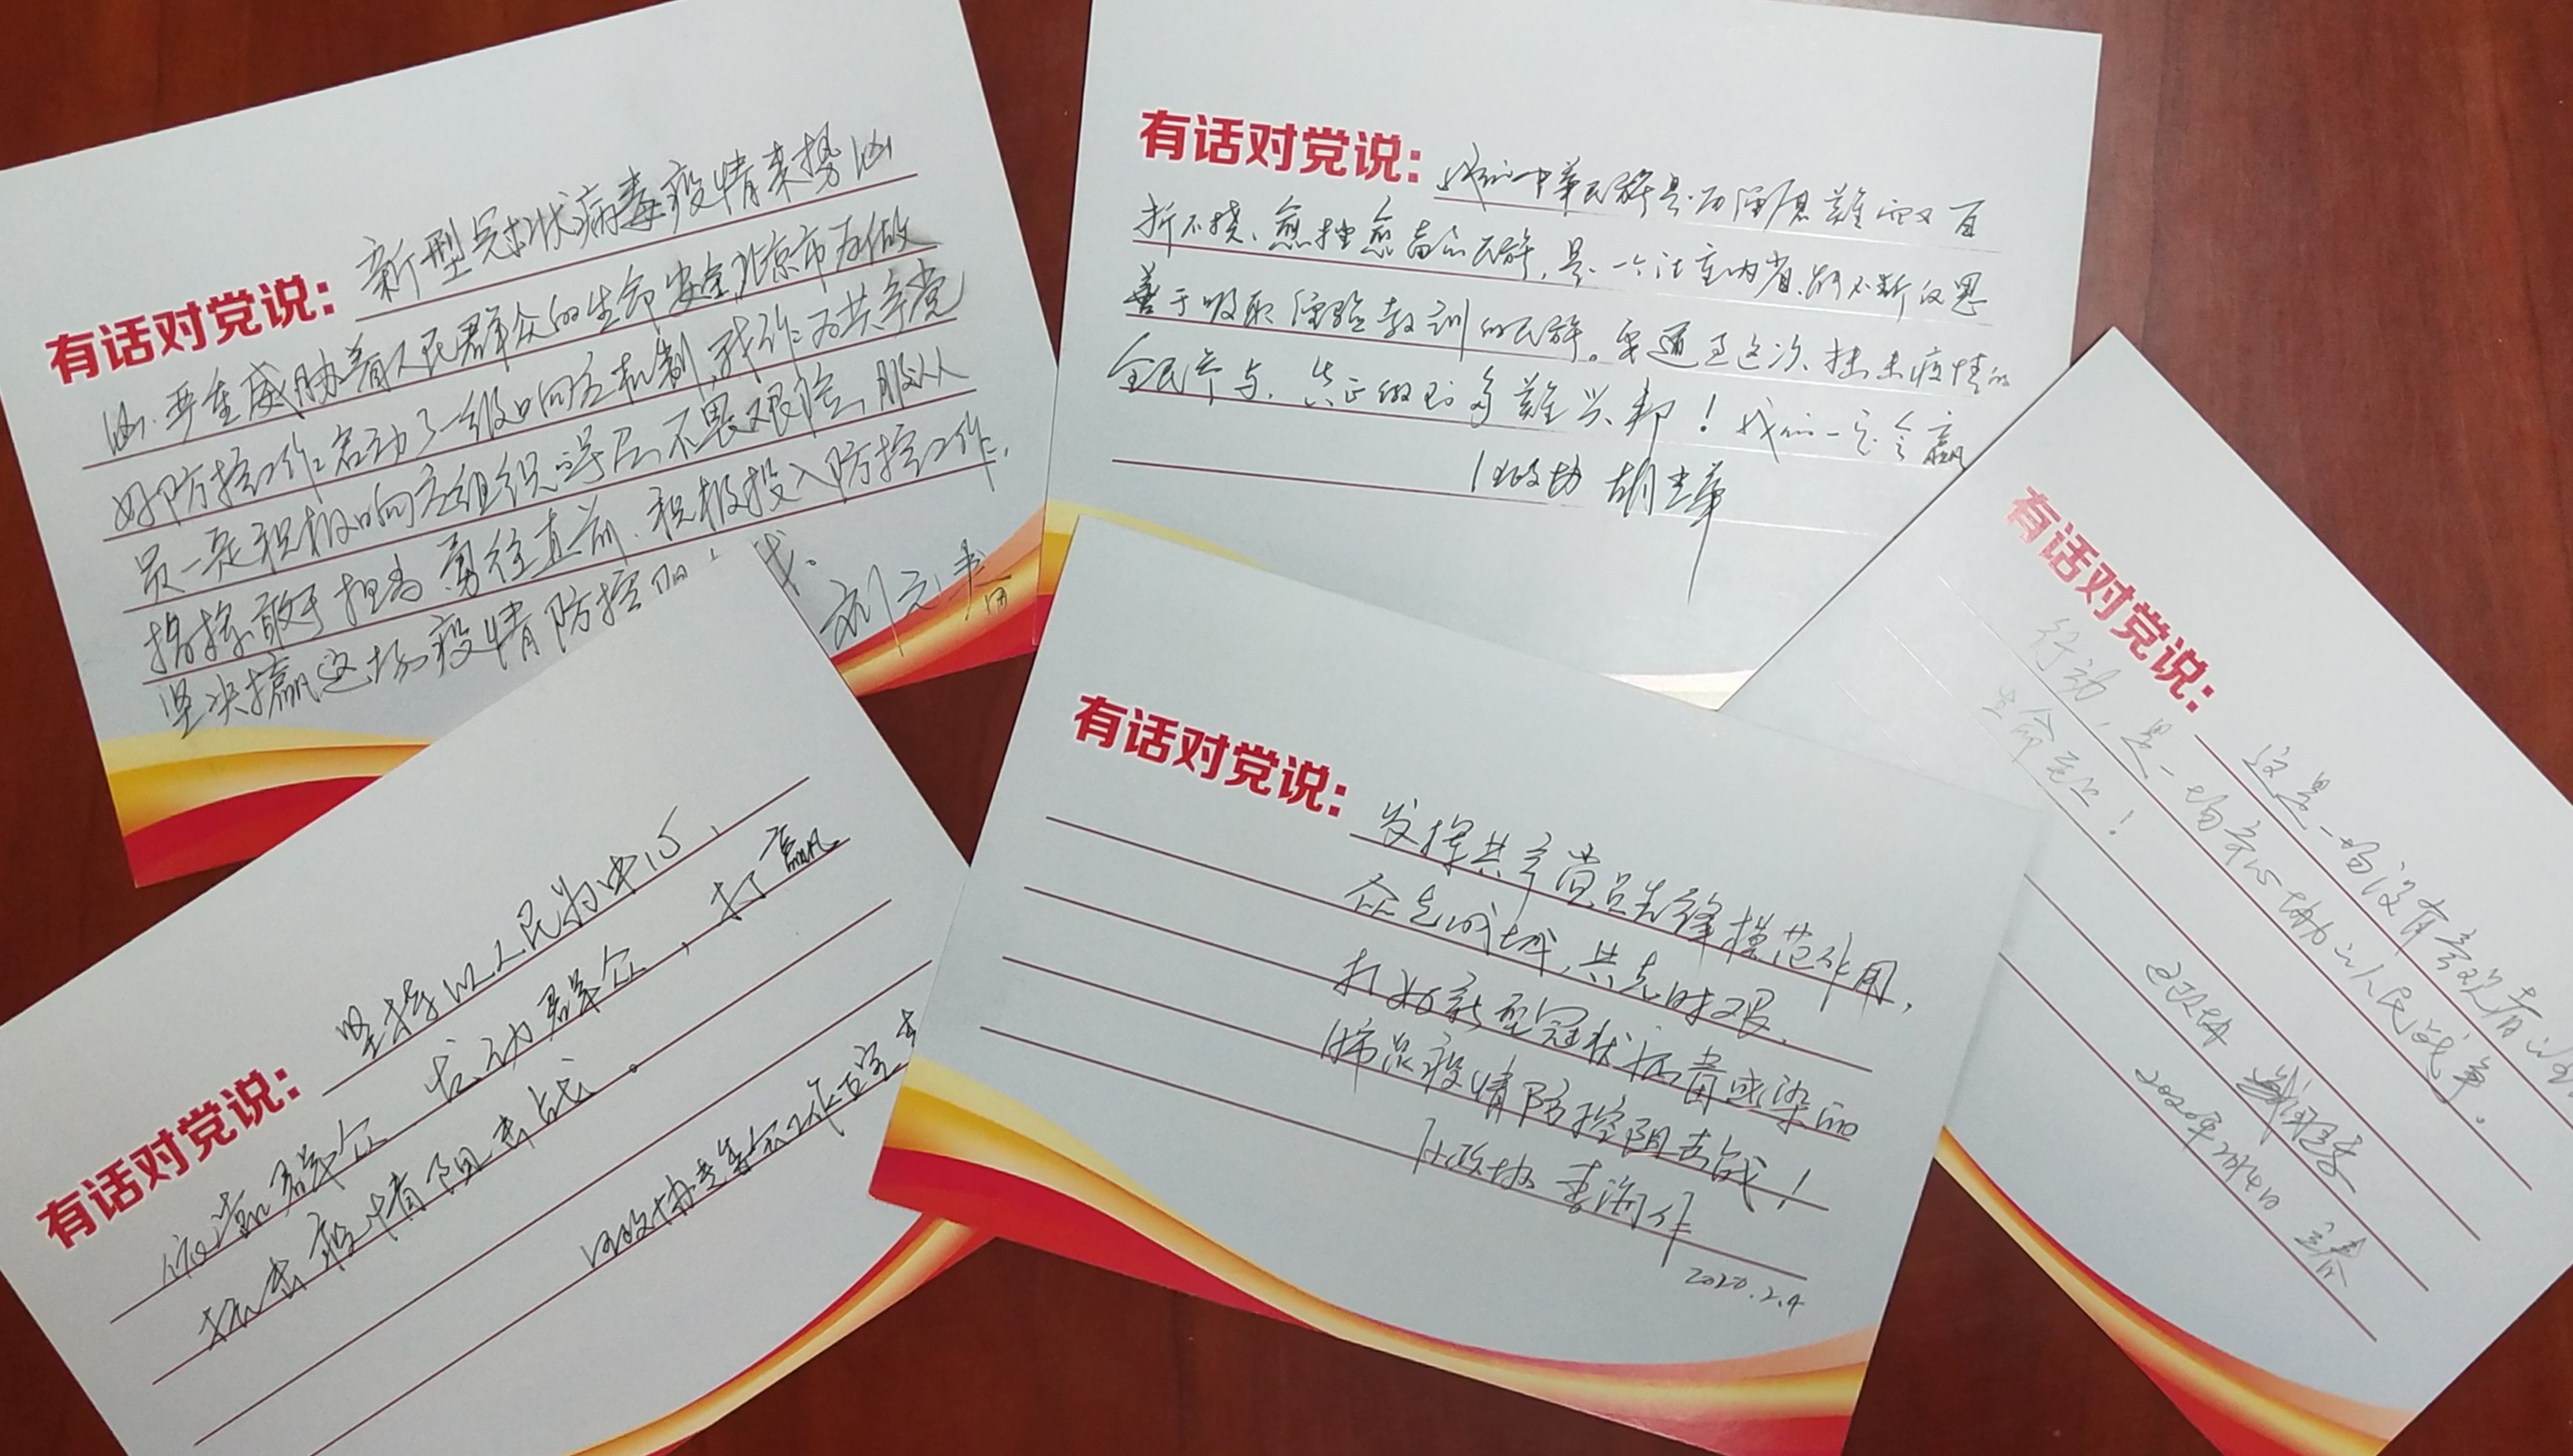 有话对党说：新型冠状病毒疫情来势汹
汹，严重威胁着人民群众的生命安全，北京市为做
好防控工作启动了一级响应机制，我作为共产党
员一是积极响应组织号召，不畏艰险，服从
指挥，敢于担当，勇往直前，积极投入防控工作，
坚决打赢这场疫情防控阻
有话对党说：我们中華民族是历经磨難而又百
折不挠、愈挫愈奋的民族，是一个注重内省、能不断反思
善于吸取经验教训的民族。要通过这次抗击疫情的
全民参与，真正做到多難兴邦！我们一定会赢
区政协 胡
有话对党说：坚持以人民为中心，
依靠群众 发动群众，打赢
抗击疫情阻击战。
区政协
有话对党说：发挥共产党员先锋模范作用，
众志成城，共克时艰，
打好新型冠状病毒感染的
肺炎疫情防控阻击战！
区政协 李海
2020.2.4
有话对党说：这是一场没有旁观者的全
行动，是一场齐心协力的人民战争。
生命至上！
区政协
2020年2月4日 立春